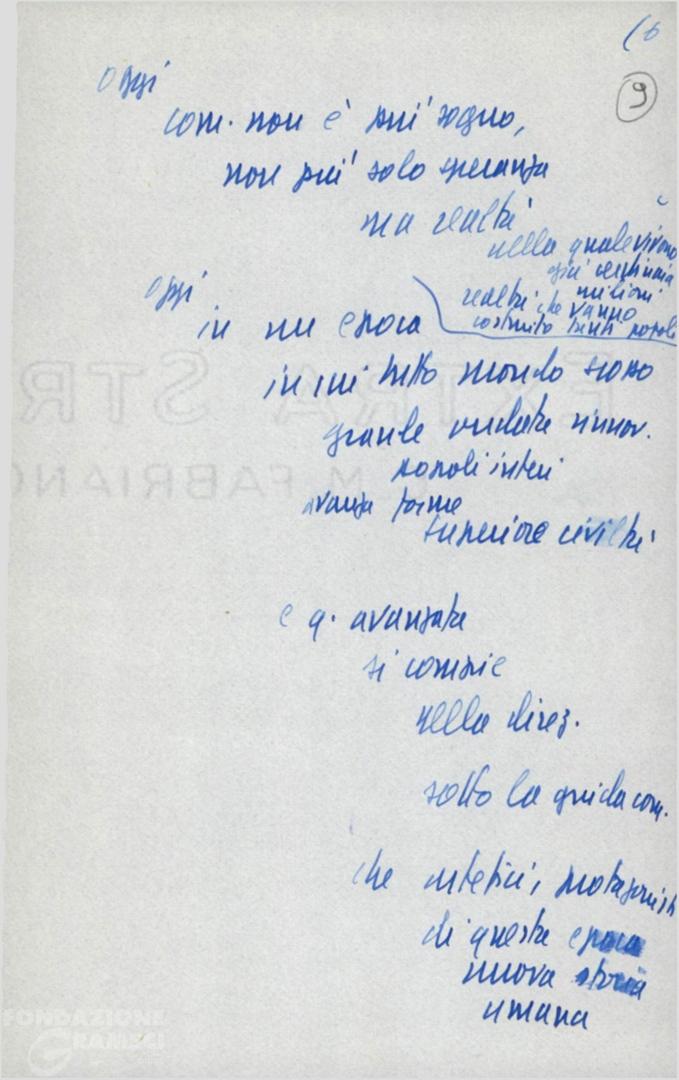 (6
9
oggi
com. non è più sogno,
non più solo speranza
ma realtà
nella quale vivono
già centinaia
milioni
realtà che vanno
costruito tanti popoli
oggi
in un epoca
in cui tutto mondo scosso
grande ondata rinnov.
popoli interi
avanza forme
superiore civiltà
e q. avanzata
si compie
nella direz.
sotto la guida com.
che artefici, protagonisti
di questa epoca
nuova storia
umana
EXTRA STR
C.M. FABRIANO
FONDAZIONE
GRAMSCI